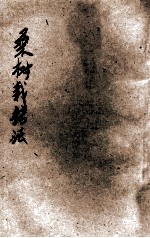 桑树栽培法